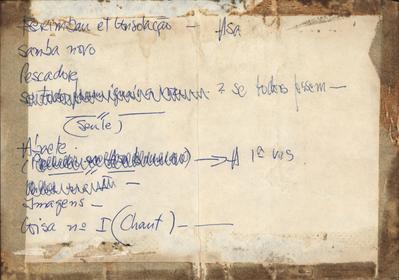 Berimbau et Consolação — Asa
samba novo
Pescadore
2 se todos fossem —
(seule)
Abaete
→ A 1ª vis
Imagens —
Coisa nº I (Chant) —